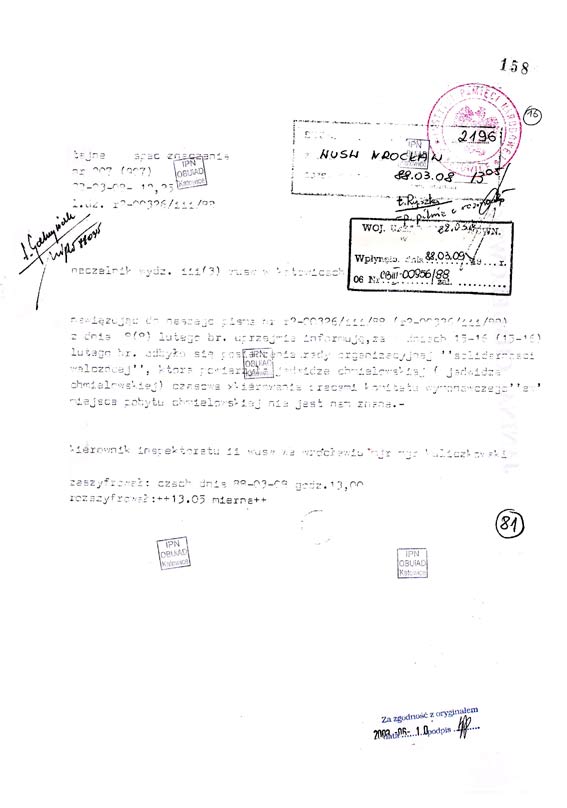 158
16
INSTYTUT PAMIĘCI NARODOWEJ
2196
NUSW WROCŁAW
88.03.08 13 05
tajne spec znaczenia
nr 997 (997)
IPN
OBUiAD
Katowice
IPN
88-03-08
l.dz. rz-00326/iii/88
WOJ.
WN.
Wpłynęło, dnia 88.03.09 r.
06 Nr CBiii-00956/88 zał.
naczelnik wydz. iii(3) wusw w katowicach
nawiązując do naszego pisma nr rz-00326/iii/88 (rz-00326/iii/88)
z dnia 8(8) lutego br. uprzejmie informuję,że w dniach 15-16 (15-16)
lutego br. odbyło się posiedzenie rady organizacyjnej ''solidarności
walczącej'', która powierzyła jadwidze chmielowskiej ( jadwidze
chmielowskiej) czasowe kierowanie pracami komitetu wykonawczego''sw''
miejsce pobytu chmielowskiej nie jest nam znane.-
IPN
OBUiAD
Katowice
kierownik inspektoratu ii wusw we wrocławiu mjr mgr
zaszyfrował: czech dnia 88-03-08 godz.13,00
rozszyfrował:++13.05 mierna++
81
IPN
OBUiAD
Katowice
IPN
OBUiAD
Katowice
Za zgodność z oryginałem
2003 -06- 1 0 podpis